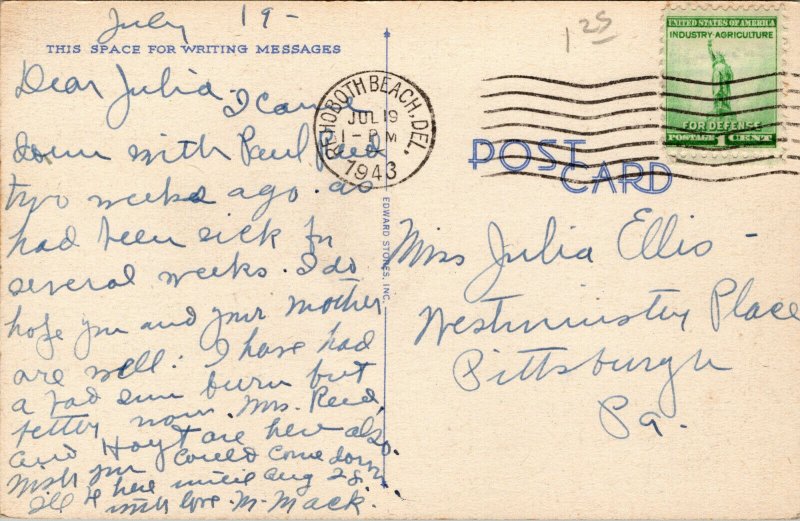 July 19-
THIS SPACE FOR WRITING MESSAGES
Dear Julia - I came
down with Paul Reed
two weeks ago. as
had been sick for
several weeks. I do
hope you and your mother
are well. I have had
a bad sun burn but
better now. Mrs. Reed
and Hoyt are here also.
Wish you could come down
I'll be here until Aug 28.
with love. M. Mack.
EDWARD STORES, INC.
REHOBOTH BEACH, DEL.
JUL 19
1 - PM
1943
1 25
UNITED STATES OF AMERICA
INDUSTRY-AGRICULTURE
FOR DEFENSE
POSTAGE 1 CENT
POST
CARD
Miss Julia Ellis -
Westminster Place
Pittsburgh
Pa.